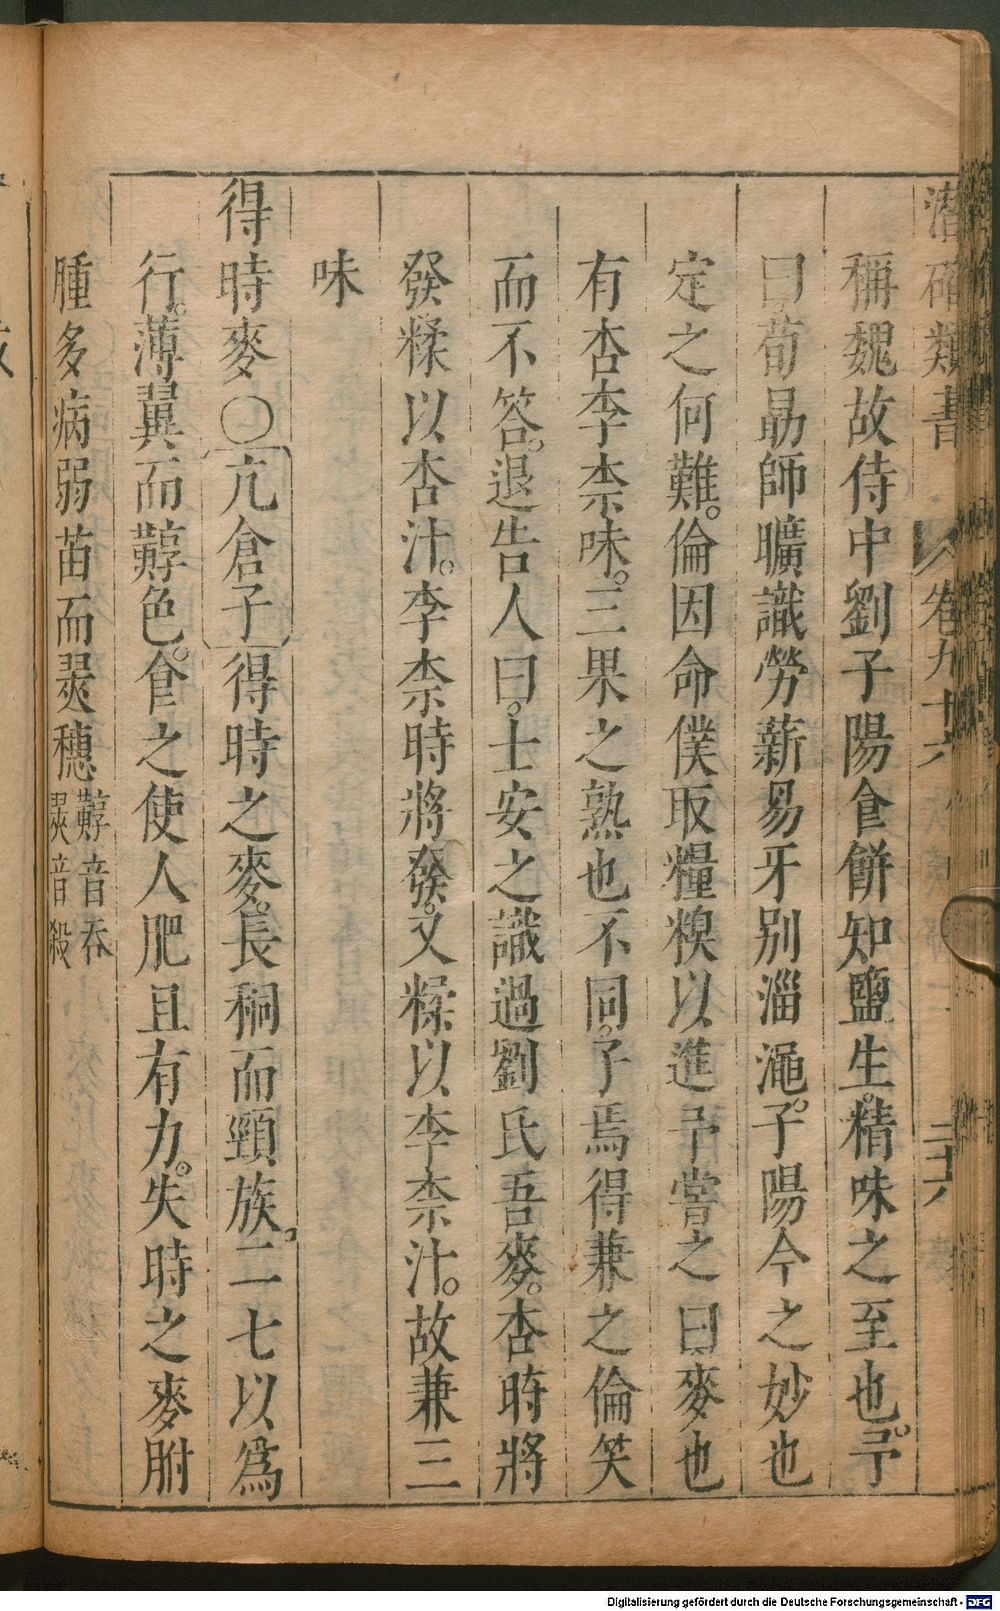 潛確類書 卷九十六 三十六
稱魏故侍中劉子陽食餅知鹽生。精味之至也。予
曰荀勗師曠識勞薪易牙别淄澠。子陽今之妙也
定之何難。倫因命僕取糧糗以進予嘗之曰麥也
有杏李柰味。三果之熟也不同。子焉得兼之倫笑
而不答。退告人曰。士安之識過劉氏吾麥。杏時將
發糅以杏汁。李柰時將發。又糅以李柰汁。故兼三
味
得時麥〇亢倉子得時之麥。長稠而頸族。二七以爲
行。薄翼而䵍色。食之使人肥且有力。失時之麥胕
腫多病弱苗而翜穗䵍音吞
翜音殺
Digitalisierung gefördert durch die Deutsche Forschungsgemeinschaft - DFG